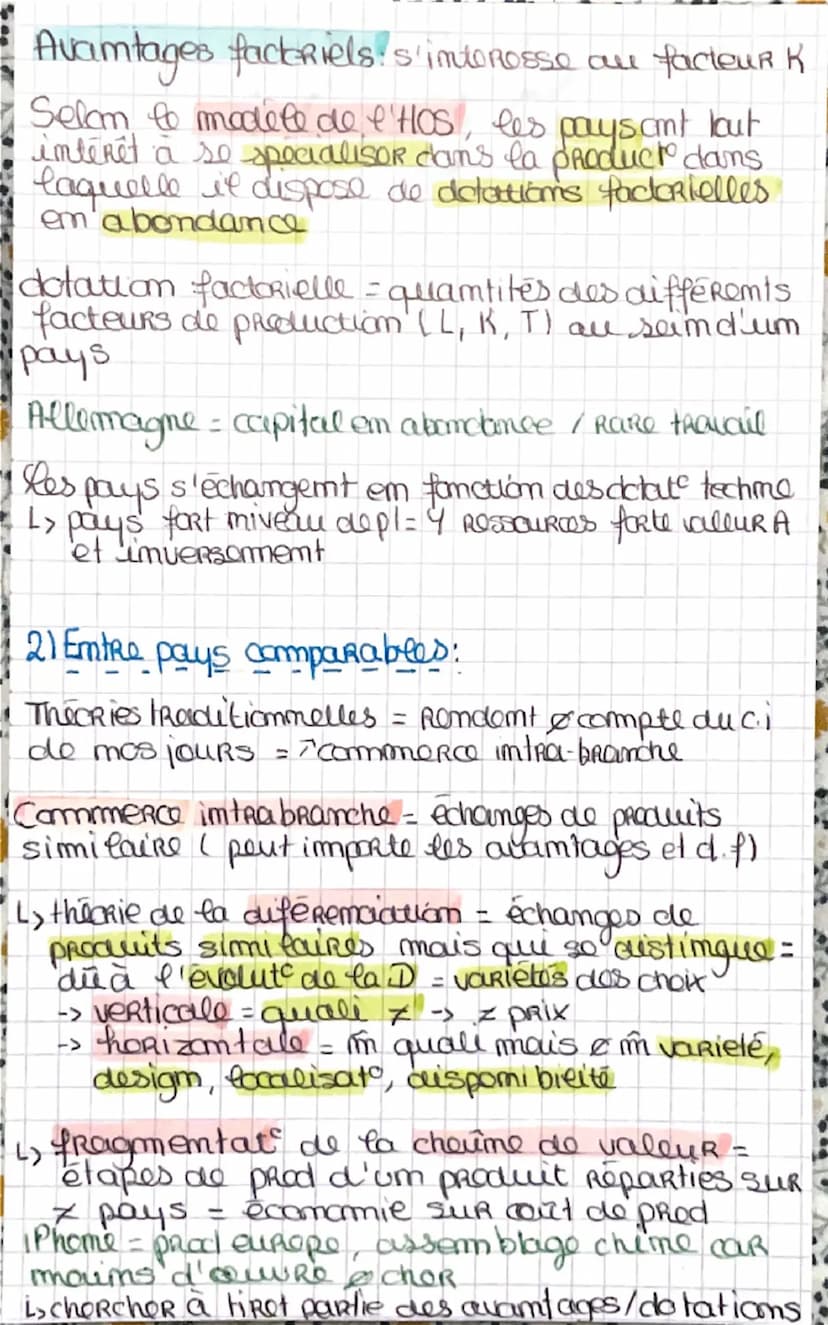 Avantages factoriels: s'interesse au facteur K
Selon le modèle de l'HOS, les pays ont tout
intérêt à se spécialiser dans la product° dans
laquelle il dispose de dotations factorielles
en abondance
dotation factorielle = quantités des différents
facteurs de production (L, K, T) au sein d'un
pays
Allemagne = capital en abondance / rare travail
Les pays s'échangent en fonction des dotat° techno
↳ pays fort niveau dvpl = ressources forte valeur A
et inversement
2) Entre pays comparables:
Théories traditionnelles = rendent ø compte du c.i
de nos jours = ↗ commerce intra-branche
Commerce intrabranche = échanges de produits
similaire ( peut importe les avantages et d.f)
↳ théorie de la diférenciation = échanges de
produits similaires mais qui se distingue =
dû à l'évolut° de la D = variétés des choix
-> verticale = quali ≠ -> ≠ prix
-> horizontale = m̂ quali mais ø m̂ varieté,
design, localisat°, disponibilité
↳ fragmentat° de la chaîne de valeur =
étapes de prod d'un produit réparties sur
≠ pays = économie sur coût de prod
iPhone = prod europe, assemblage chine car
mains d'œuvre ø cher
↳ chercher à tiret partie des avantages/dotations